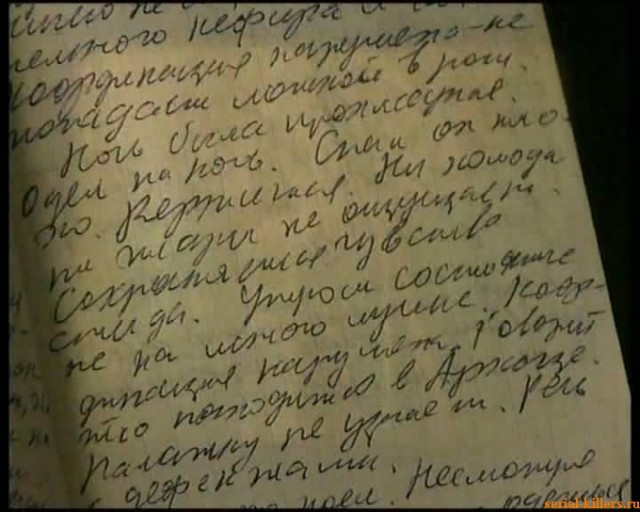 тельного кефира и
Координация нарушена - не
попадает ложкой в рот.
Ночь была прохладная.
Одел на ночь. Спал он пло-
хо. Вертелся. Ни холода
ни жары не ощущает.
Сохраняется чувство
стыда. Утром состояние
не на много лучше. Коор-
динация наруш. Говорит
что находится в
Палатку не узнает. Речь
с дефектами.
поел. Несмотря
serial-killers.ru